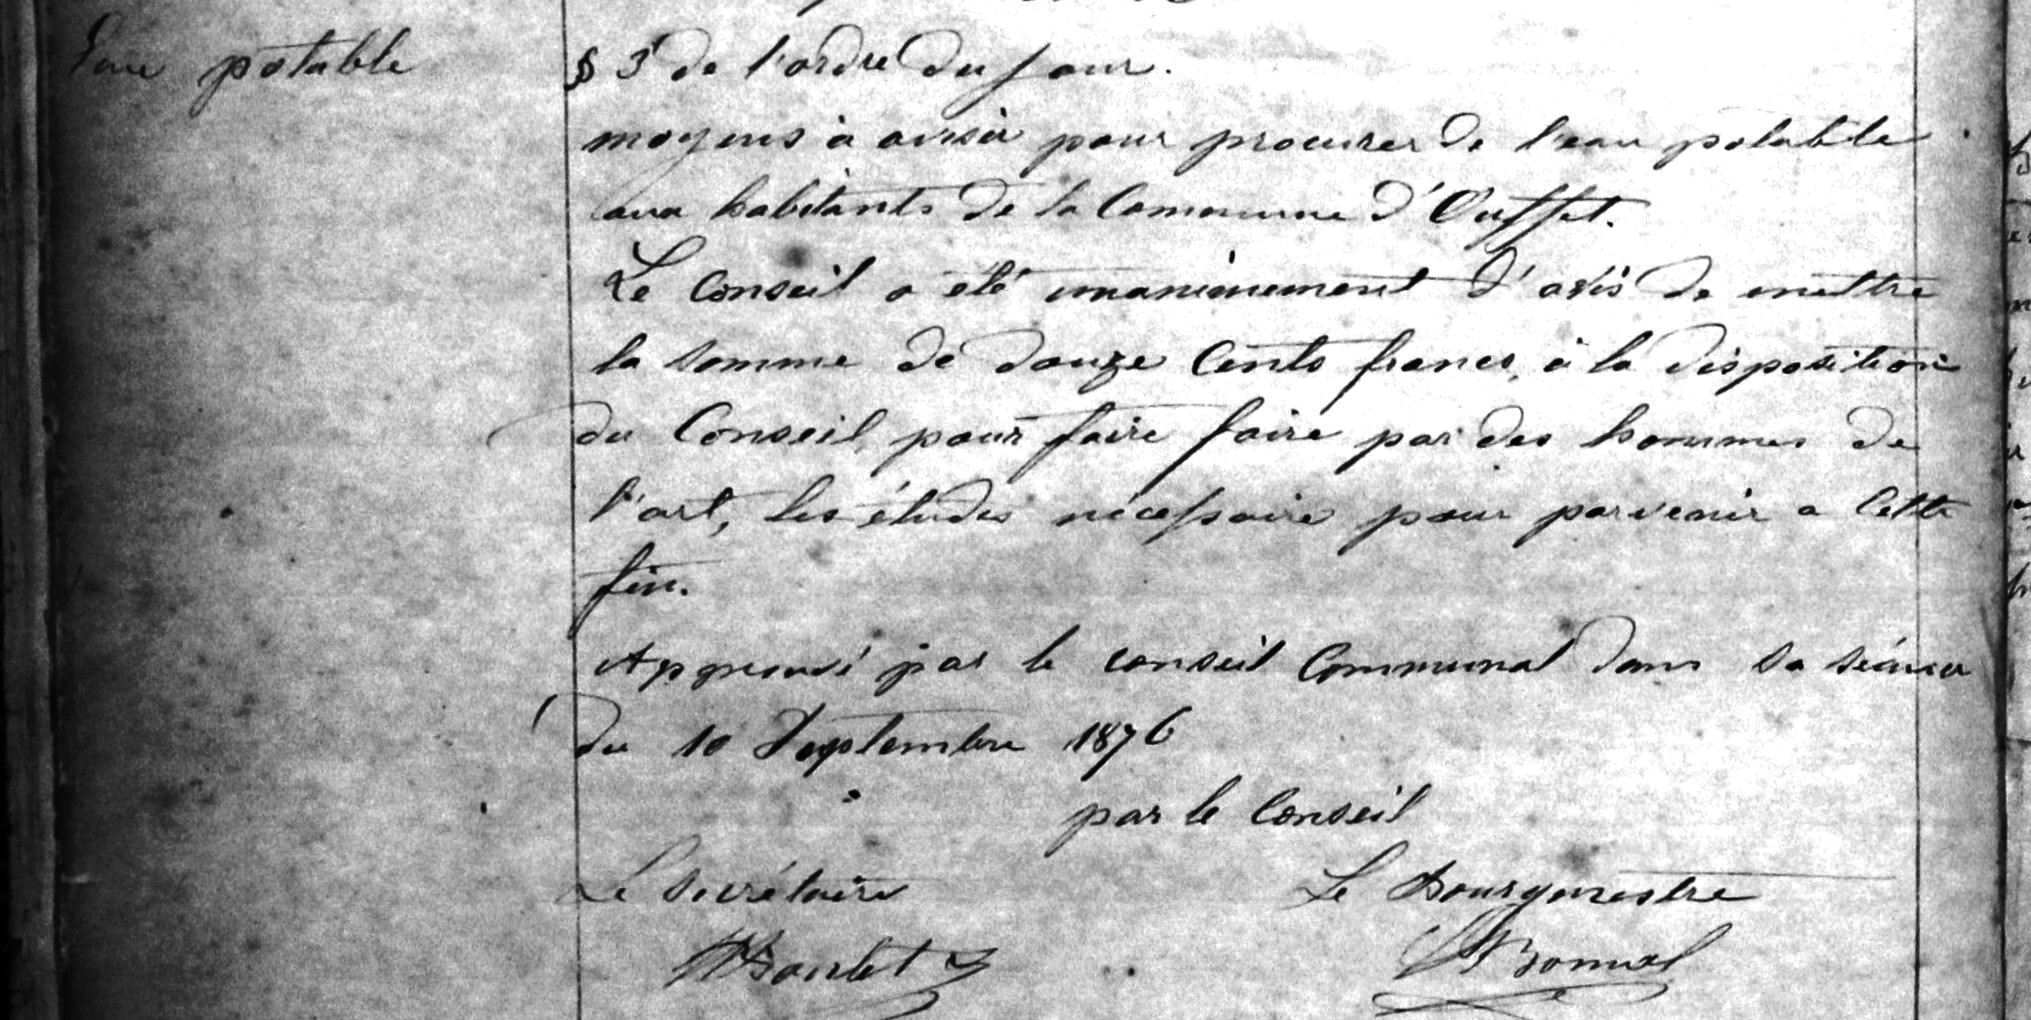 Eau potable
§ 3 de l'ordre du jour.
moyens à aviser pour procurer de l'eau potable
aux habitants de la Commune d'Ouffet.
Le Conseil a été unanimement d'avis de mettre
la somme de douze Cents francs, à la disposition
du Conseil pour faire faire par des hommes de
l'art, les études nécessaire pour parvenir a Cette
fin.
Approuvé par le conseil Communal dans sa séance
du 10 Septembre 1876
par le Conseil
Le Secrétaire
Le Bourgmestre